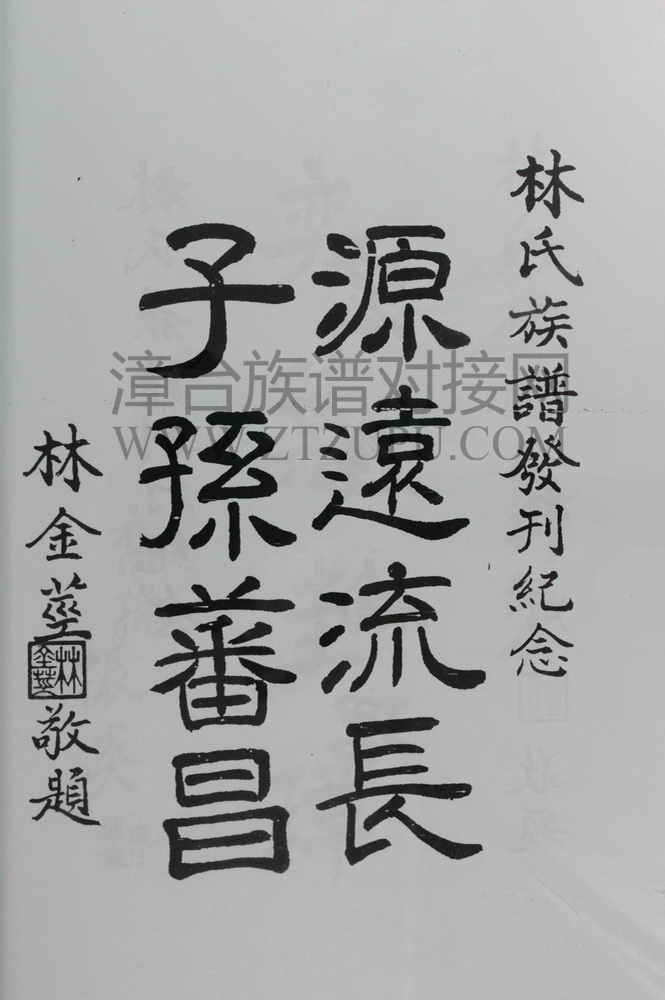 林氏族譜發刊紀念
源遠流長
子孫蕃昌
林金莖敬題
漳台族谱对接网
WWW.ZTZUPU.COM